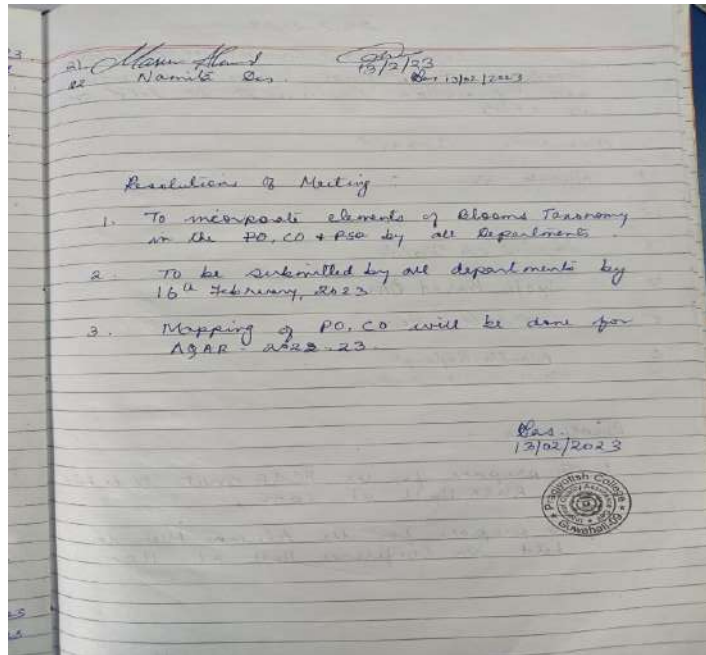 21.
13/2/23
22 Namita Das. Das 13/02/2023
Resolutions of Meeting :
1. To incorporate elements of Blooms Taxonomy
in the PO, CO & PSO by all Departments.
2. To be submitted by all departments by
16th February, 2023
3. Mapping of PO, CO will be done for
AQAR - 2022-23.
Das.
13/02/2023
Pragjyotish College
Quality Assurance
Guwahati-09